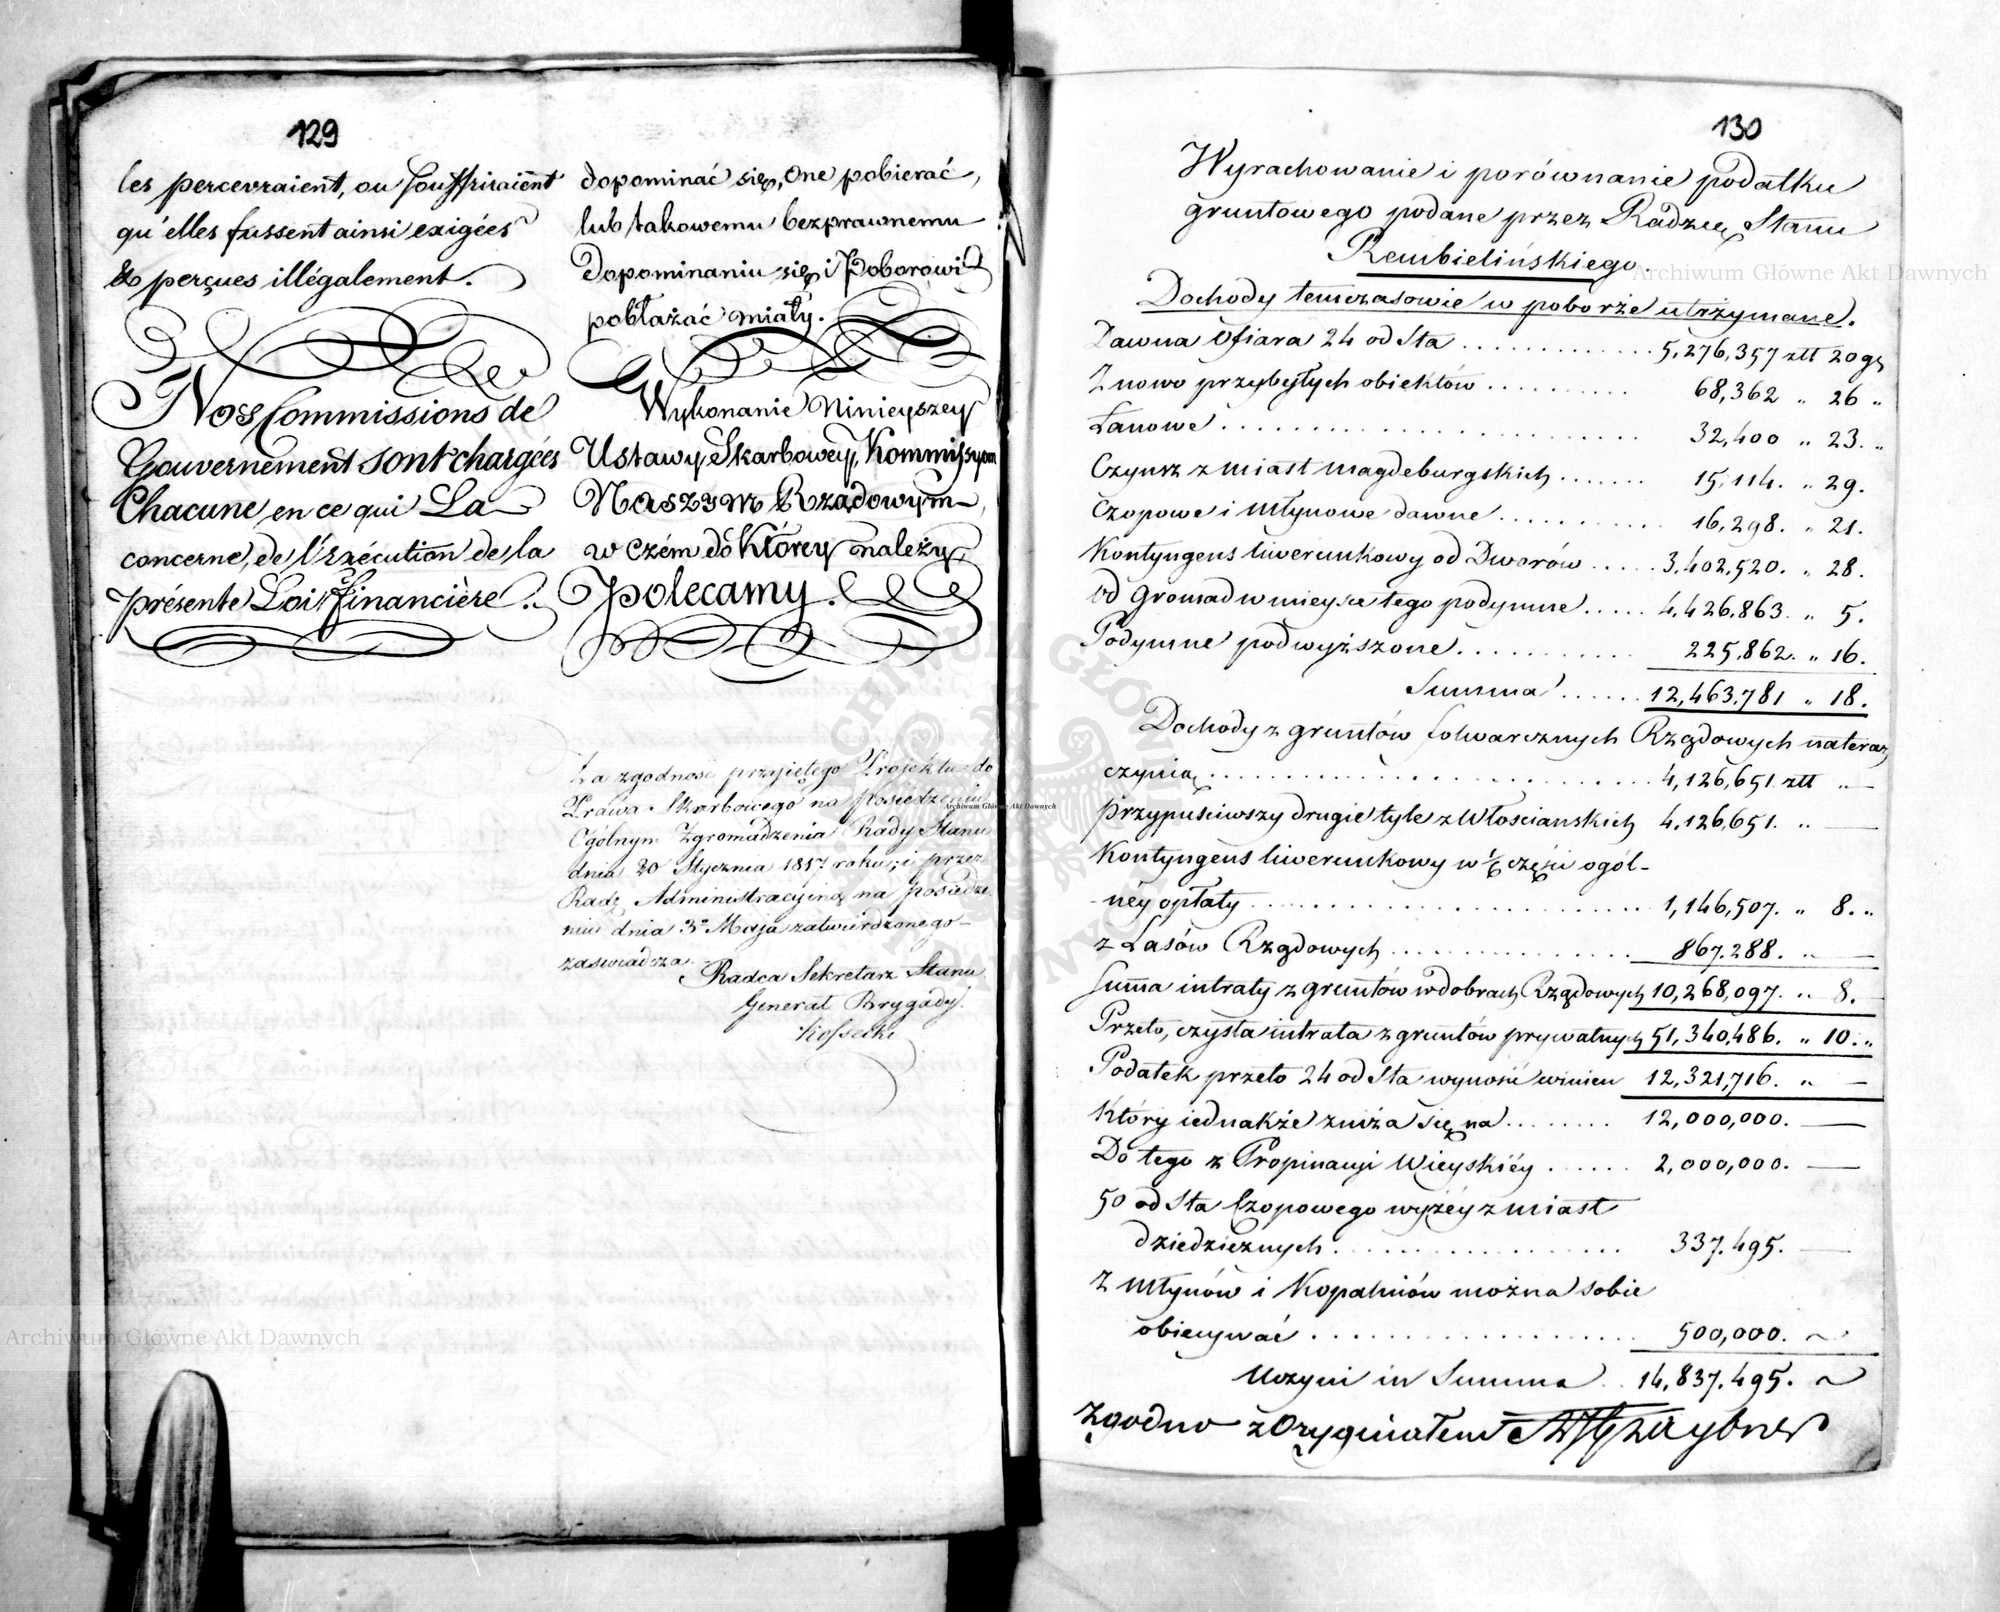 129
les percevraient, ou souffriraient
qu'elles fussent ainsi exigées
& perçues illégalement.
Nos Commissions de
Gouvernement sont chargées
Chacune en ce qui La
concerne, de l'Exécution de la
présente Loi financière.
dopominać się, one pobierać,
lub takowemu bezprawnemu
dopominaniu się i Poborowi
pobłażać miały.
Wykonanie Ninieyszey
Ustawy Skarbowey, Kommissyom
Naszym Rządowym,
w czém do Którey należy,
Polecamy.
Za zgodność przyjętego Projektu do
Prawa Skarbowego na Posiedzeniu
Ogólnym Zgromadzenia Rady Stanu
dnia 20 Stycznia 1817 roku, i przez
Radę Administracyjną na posiedze
niu dnia 3º Maja zatwierdzonego
zaświadcza.
Radca Sekretarz Stanu
Generał Brygady
Kossecki
130
Wyrachowanie i porównanie podatku
gruntowego podane przez Radzcę Stanu
Rembielińskiego.
Dochody temczasowie w poborze utrzymane.
Dawna Ofiara 24 od Sta . . . 5,276,357 złł 20 gr
Z nowo przybyłych obiektów . . . 68,362 „ 26 „
Łanowe . . . 32,400 „ 23. „
Czynsz z miast magdeburgskich . . . 15,114. „ 29.
Czopowe i młynowe dawne . . . 16,298. „ 21.
Kontyngens liwerunkowy od Dworów . . . 3,402,520. „ 28.
od Gromad w mieysce tego podymne . . . 4,426,863. „ 5.
Podymne podwyższone . . . 225,862. „ 16.
Summa . . . 12,463,781 „ 18.
Dochody z gruntów folwarcznych Rządowych nateraz
czynią . . . 4,126,651 złł „ —
Przypuściwszy drugie tyle z Włościańskich 4,126,651. „ —
Kontyngens liwerunkowy w 1/6 części ogól-
ney opłaty . . . 1,146,507. „ 8. „
z Lasów Rządowych . . . 867,288. „ —
Summa intraty z gruntów w dobrach Rządowych 10,268,097. „ 8.
Przeto, czysta intrata z gruntów prywatnych 51,340,486. „ 10. „
Podatek przeto 24 od Sta wynosić winien 12,321,716. „ —
Który iednakże zniża się na . . . 12,000,000. —
Do tego z Propinacyi Wieyskiéy . . . 2,000,000. —
50 od Sta Czopowego wyżéy z miast
dziedzicznych . . . 337,495. —
Z Młynów i Kopalniów można sobie
obiecywać . . . 500,000. ~
Uczyni in Summa . . 14,837,495. ~
Zgodno z Oryginałem
Archiwum Główne Akt Dawnych
Archiwum Główne Akt Dawnych
Archiwum Główne Akt Dawnych